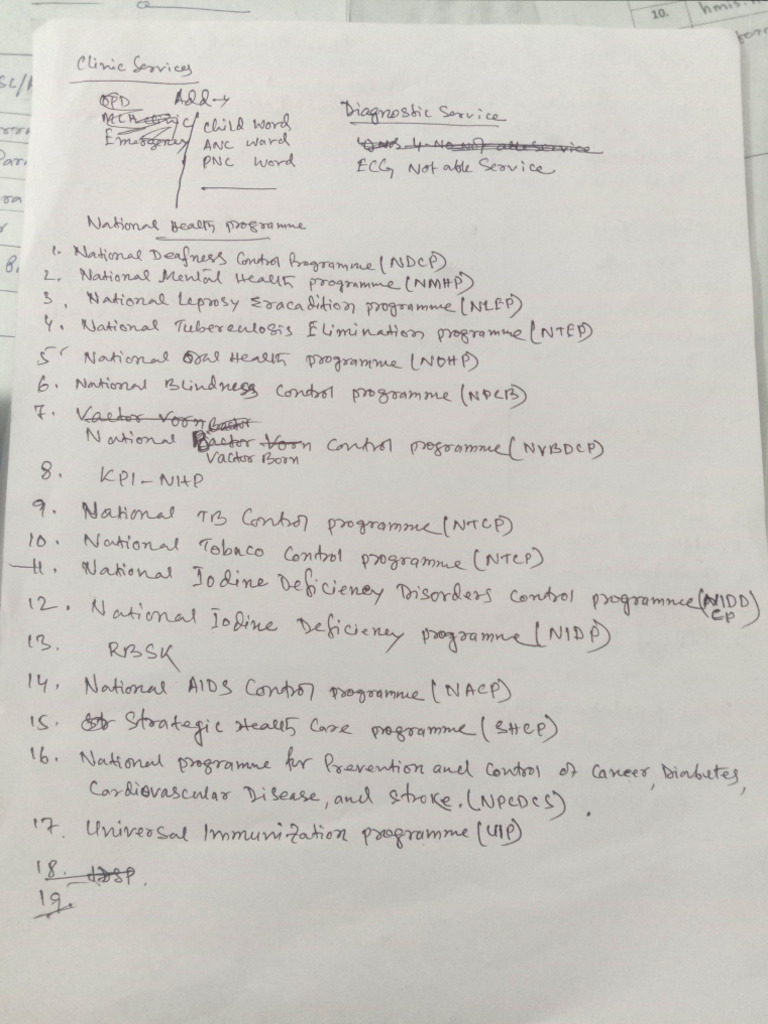 10.
hmis.
form
SC/
Clinic Services
OPD Add→
MCH clinic
Emergency
Child Word
ANC ward
PNC Word
Diagnostic Service
ECG Not able Service
National Health programme
1. National Deafness Control Programme (NDCP)
2. National Mental Health programme (NMHP)
3, National Leprosy Eracadition programme (NLEP)
4. National Tuberculosis Elimination programme (NTEP)
5' National Oral Health programme (NOHP)
6. National Blindness control programme (NPCB)
7. Vactor Vorn Bactor
National Bactor Vorn Control programme (NVBDCP)
Vactor Born
8. KPI-NHP
9. National TB Control programme (NTCP)
10. National Tobaco Control programme (NTCP)
11. National Iodine Deficiency Disorders Control programme (NIDD
CP)
12. National Iodine Deficiency programme (NIDP)
13. RBSK
14. National AIDS Control programme (NACP)
15. Strategic Health Care programme (SHCP)
16. National programme for Prevention and Control of Cancer, Diabetes,
Cardiovascular Disease, and stroke. (NPCDCS).
17. Universal Immunization programme (UIP)
18. IDSP.
19.